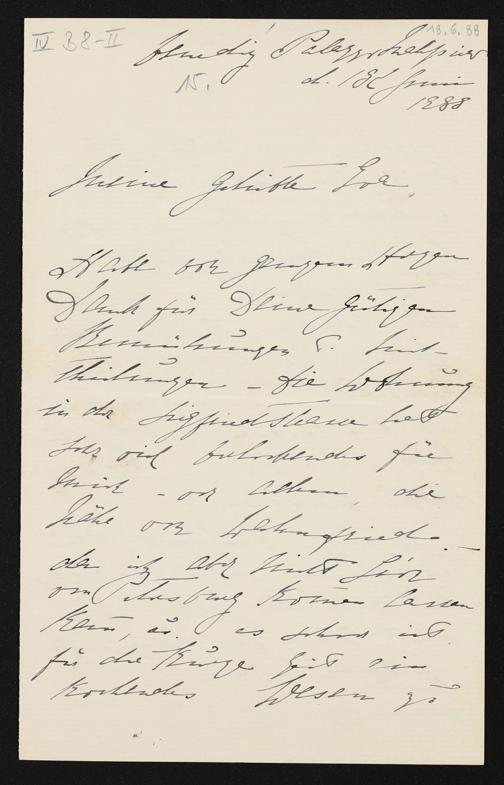 IV B 8-II
18.6.88
Venedig Palazzo Malipiero
15.
d. 18t Juni
1888
Meine geliebte Eva,
Habe von ganzem Herzen
Dank für Deine gütigen
Bemühungen u. Mit-
theilungen – die Wohnung
in der Siegfriedstrasse hat
sehr viel verlockendes für
mich – vor allem, die
Nähe von Wahnfried –
da ich aber nicht
von Petersburg komen lassen
kann, u. es schwer ist
für die Kürze Zeit ein
kochendes Wesen zu